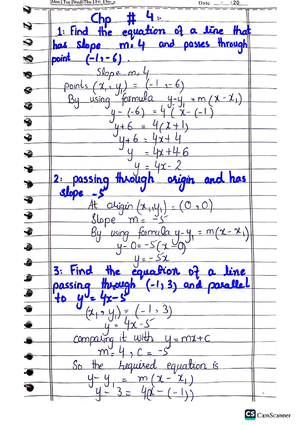 Mon Tue Wed Thu Fri Sat
Date: / /20
Chp # 4:-
1: Find the equation of a line that
has slope m=4 and passes through
point (-1,-6).
Slope m=4
points (x₁,y₁) = (-1,-6)
By using formula y-y₁ = m(x-x₁)
y-(-6) = 4(x-(-1)
y+6 = 4(x+1)
y+6 = 4x+4
y = 4x+46
y = 4x-2
2: passing through origin and has
slope -5
At origin (x₁,y₁) = (0,0)
Slope m= -5
By using formula y-y₁ = m(x-x₁)
y-0=-5(x-0)
y=-5x
3: Find the equation of a line
passing through (-1,3) and parallel
to y=4x-5
(x₁,y₁) = (-1,3)
y = 4x-5
comparing it with y=mx+c
m=4, c=-5
So the required equation is
y-y₁ = m(x-x₁)
y-3 = 4(x-(-1))
CS CamScanner